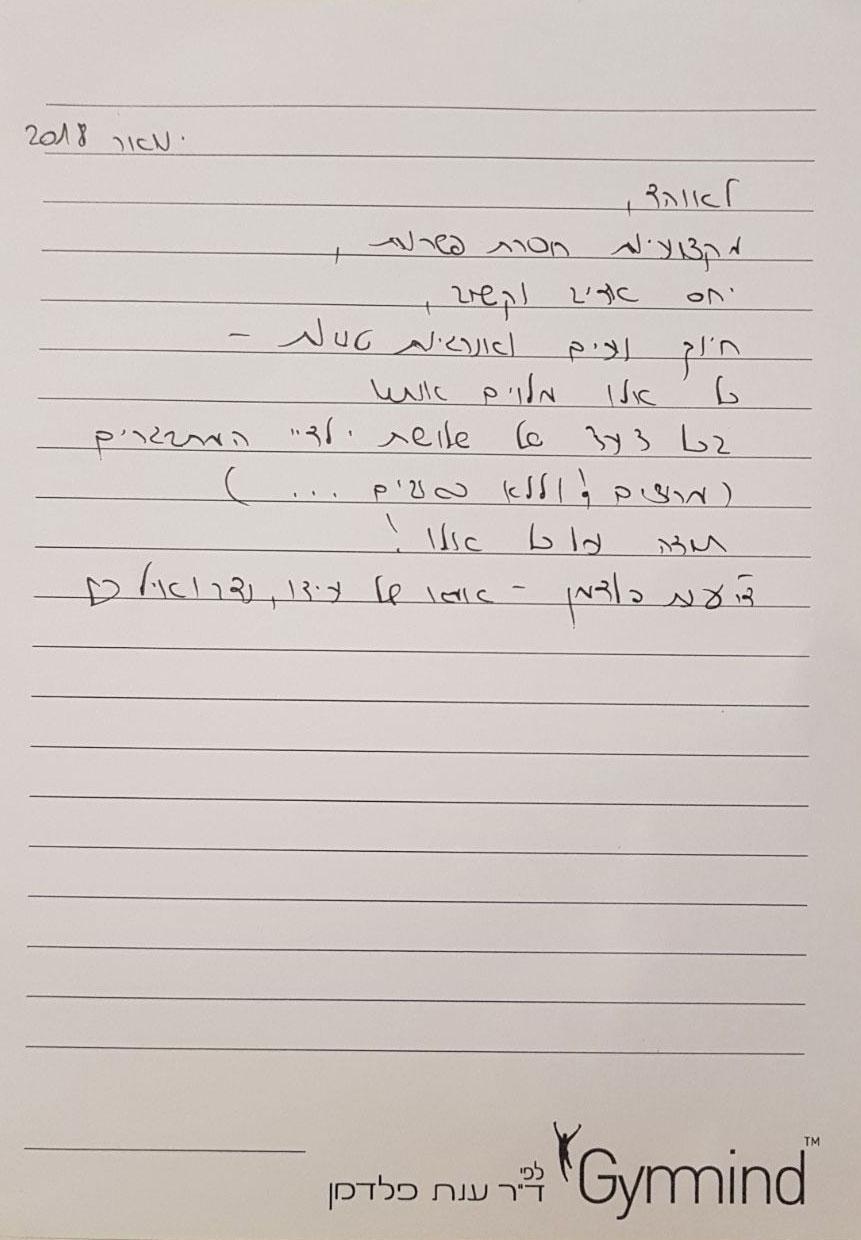 ינואר 2018
לאוהד,
מקצועיות חסרת פשרות,
יחס אדיב וקשוב,
חיוך נעים ואנרגיות טובות –
כל אלו מלווים אותנו
בכל צעד של שלושת ילדיי המתבגרים
(מרוצים! וללא פצעים ...)
תודה על כל אלו!
ד"ר ענת פלדמן – אמא של עידו, נדב ואיל
Gymmind TM
לפי
ד"ר ענת פלדמן